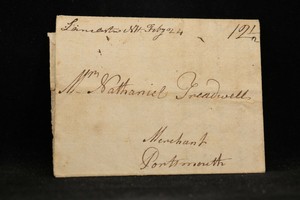 Lancaster NH Feby 24
12 1/2
Mr Nathaniel Treadwell
Merchant
Portsmouth